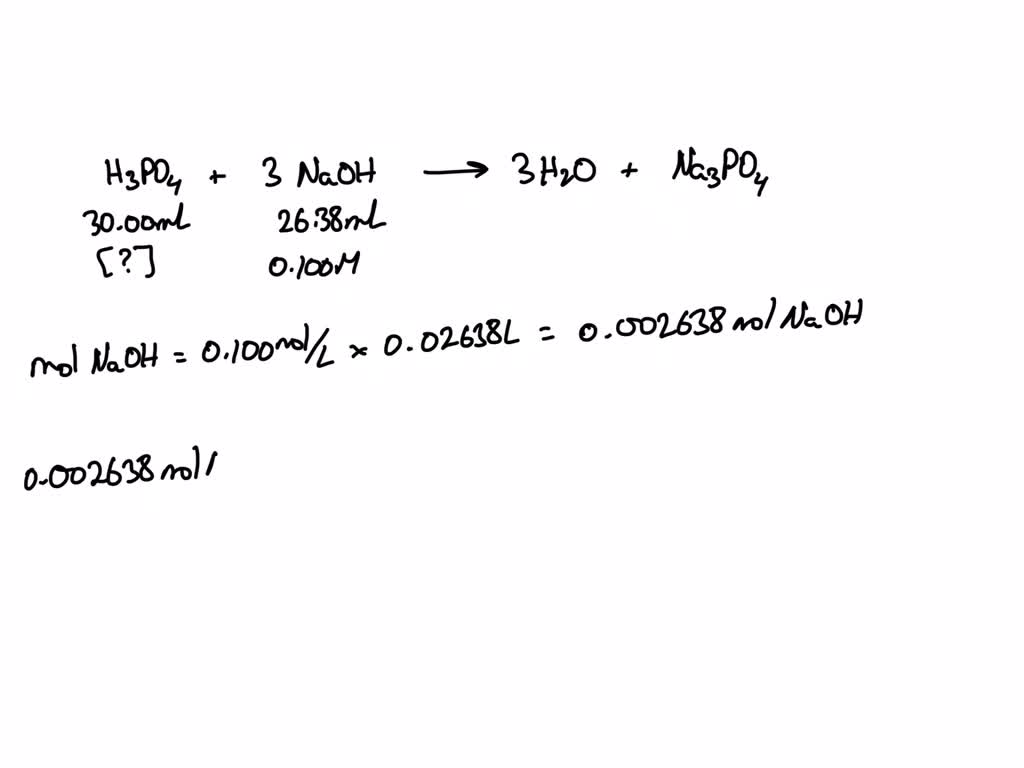 H₃PO₄ + 3 NaOH → 3H₂O + Na₃PO₄
30.00mL 26.38mL
[?] 0.100M
mol NaOH = 0.100mol/L × 0.02638L = 0.002638 mol NaOH
0.002638 mol